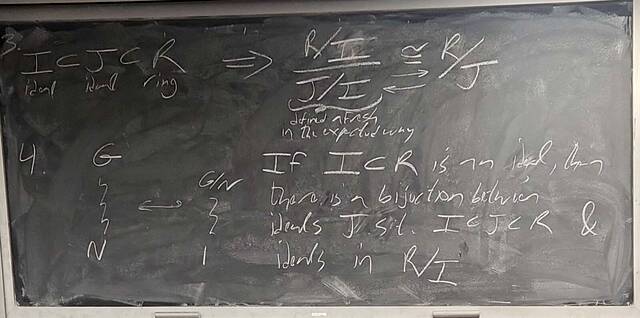 3. I ⊂ J ⊂ R ⇒ (R/I)/(J/I) ≅ R/J
ideal ideal ring
defined afresh
in the expected way
4. G
N
↔
G/N
1
If I ⊂ R is an ideal, then
there is a bijection between
ideals J s.t. I ⊂ J ⊂ R &
ideals in R/I